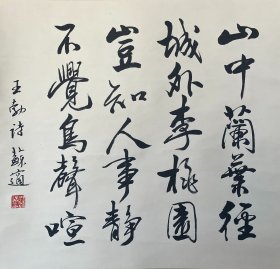 山中蘭葉徑
城外李桃園
豈知人事靜
不覺鳥聲喧
王勃詩 蘇適